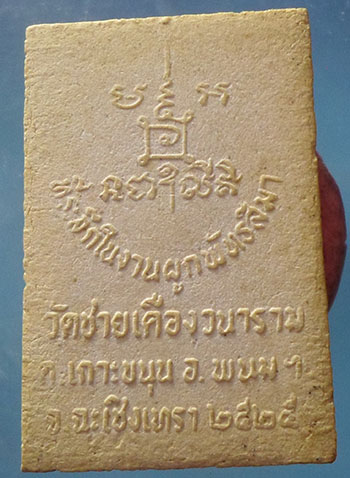 ที่ระลึกในงานผูกพัทธสีมา
วัดชายเคืองวนาราม
ต.เกาะขนุน อ.พนม ฯ
จ.ฉะเชิงเทรา ๒๕๒๕